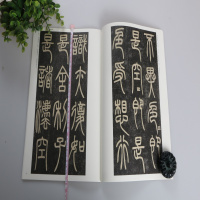 不異色即
是空即是
色受想行
識亦復如
是舍利子
是諸灋空